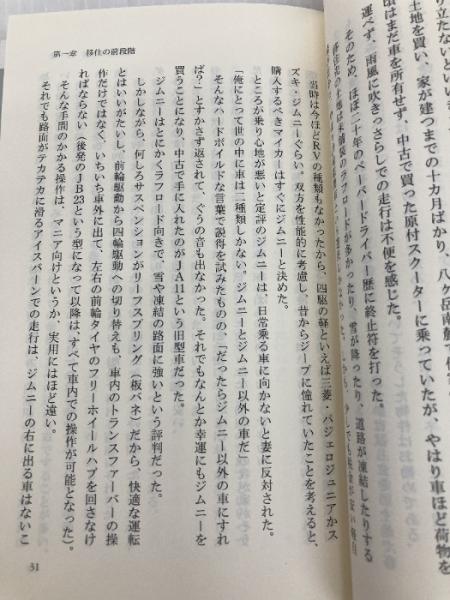 り立たないとい
土地を買い、家が建つまでの十カ月ばかり、八ヶ岳南麓
頃はまだ車を所有せず、中古で買った原付スクーターに乗っていたが、やはり車ほど荷物を
運べず、雨風に吹きっさらしでの走行は不便を感じた。
そのため、ほぼ二十年のペーパードライバー歴に終止符を打った。
ラフロードが多かったり、雪が降ったり、道路が凍結したりする
第一章 移住の前段階
当時は今ほどRVの種類もなかったから、四駆の軽といえば三菱・パジェロジュニアかス
ズキ・ジムニーぐらい。双方を性能的に考慮し、昔からジープに憧れていたことを考えると、
購入するべきマイカーはすぐにジムニーと決めた。
ところが乗り心地が悪いと定評のジムニーは、日常乗る車に向かないと妻に反対された。
「俺にとって世の中に車は二種類しかない。ジムニーとジムニー以外の車だ」
そんなハードボイルドな言葉で説得を試みたものの、「だったらジムニー以外の車にすれ
ば?」とすかさず返されて、ぐうの音も出なかった。それでもなんとか幸運にもジムニーを
買うことになり、中古で手に入れたのがJA11という旧型車だった。
ジムニーはとにかくラフロード向きで、雪や凍結の路面に強いという評判だった。
しかしながら、何しろサスペンションがリーフスプリング(板バネ)だから、快適な運転
とはいいがたいし、前輪駆動から四輪駆動への切り替えも、車内のトランスファーバーの操
作だけではなく、いちいち車外に出て、左右の前輪タイヤのフリーホイールハブを回さなけ
ればならない(後発のJB23という型になって以降は、すべて車内での操作が可能となった)。
そんな手間のかかる操作は、マニア向けというか、実用にはほど遠い。
それでも路面がテカテカに滑るアイスバーンでの走行は、ジムニーの右に出る車はないこ
31